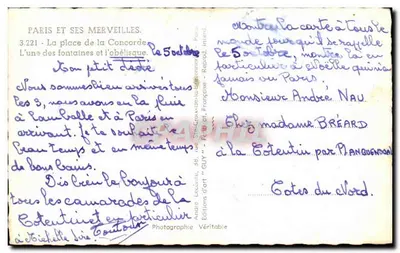 PARIS ET SES MERVEILLES.
3.221 - La place de la Concorde
L'une des fontaines et l'obélisque.
le 5 octobre
Mon petit Dédé
Nous sommes bien arrivés tous
les 3, nous avons eu la pluie
à Lamballe et à Paris en
arrivant. Je te souhaite
beau temps et en même temps
de bons bains.
Dis bien le bonjour à
tous les camarades de la
Cotentin et en particulier
à Michelle
Toutous
Photographie Véritable
Editions d'art "GUY"
Montre la carte à tous le
monde pour qu'il se rappelle
le 5 octobre, montre la en
particulier à
jamais vu Paris.
Monsieur André NAU
Chez madame BRÉARD
à la Cotentin par PLANGUENOUAL
Côtes du Nord.